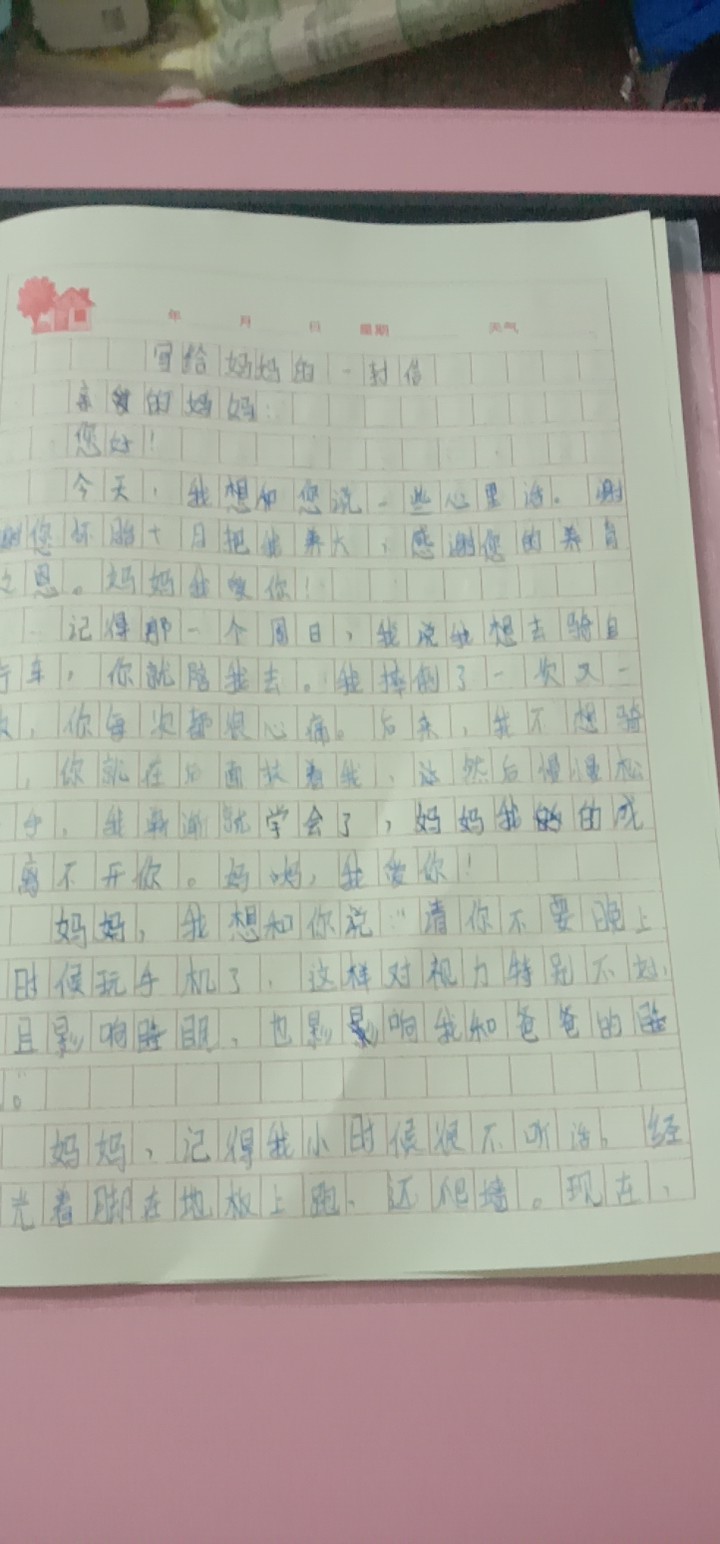 年 月 日 星期 天气
写给妈妈的一封信
亲爱的妈妈：
您好！
今天，我想和您说一些心里话。谢
谢您怀胎十月把我养大，感谢您的养育
之恩。妈妈我爱你！
记得那一个周日，我说我想去骑自
行车，你就陪我去。我摔倒了一次又一
次，你每次都很心痛。后来，我不想骑
，你就在后面扶着我，然后慢慢松
手，我渐渐就学会了，妈妈我的成
离不开你。妈妈，我爱你！
妈妈，我想和你说：“请你不要晚上
时候玩手机了，这样对视力特别不
且影响睡眠，也影响我和爸爸的睡
。
妈妈，记得我小时候很不听话。经
光着脚在地板上跑，还爬墙。现在，